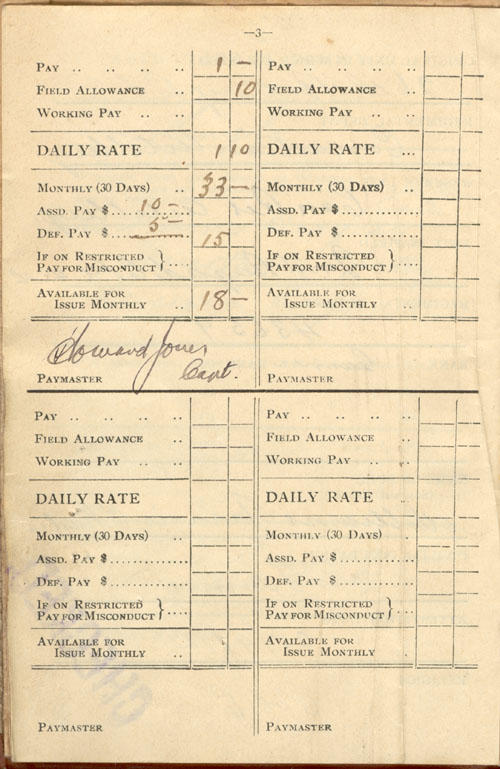 —3—
PAY .. .. .. .. 1 —
FIELD ALLOWANCE .. 10
WORKING PAY .. ..
DAILY RATE 1 10
MONTHLY (30 DAYS) .. 33 —
ASSD. PAY $ 10 —
DEF. PAY $ 5 — 15
IF ON RESTRICTED
PAY FOR MISCONDUCT } ....
AVAILABLE FOR
ISSUE MONTHLY .. 18 —
Howard Jones
Capt.
PAYMASTER
PAY .. .. .. ..
FIELD ALLOWANCE ..
WORKING PAY .. ..
DAILY RATE ...
MONTHLY (30 DAYS) ..
ASSD. PAY $..............
DEF. PAY $..............
IF ON RESTRICTED
PAY FOR MISCONDUCT } ....
AVAILABLE FOR
ISSUE MONTHLY ..
PAYMASTER
PAY .. .. .. ..
FIELD ALLOWANCE ..
WORKING PAY .. ..
DAILY RATE
MONTHLY (30 DAYS) ..
ASSD. PAY $..............
DEF. PAY $..............
IF ON RESTRICTED
PAY FOR MISCONDUCT } ....
AVAILABLE FOR
ISSUE MONTHLY ..
PAYMASTER
PAY .. .. .. ..
FIELD ALLOWANCE ..
WORKING PAY .. ..
DAILY RATE ...
MONTHLY (30 DAYS) .
ASSD. PAY $..............
DEF. PAY $..............
IF ON RESTRICTED
PAY FOR MISCONDUCT } ....
AVAILABLE FOR
ISSUE MONTHLY ..
PAYMASTER